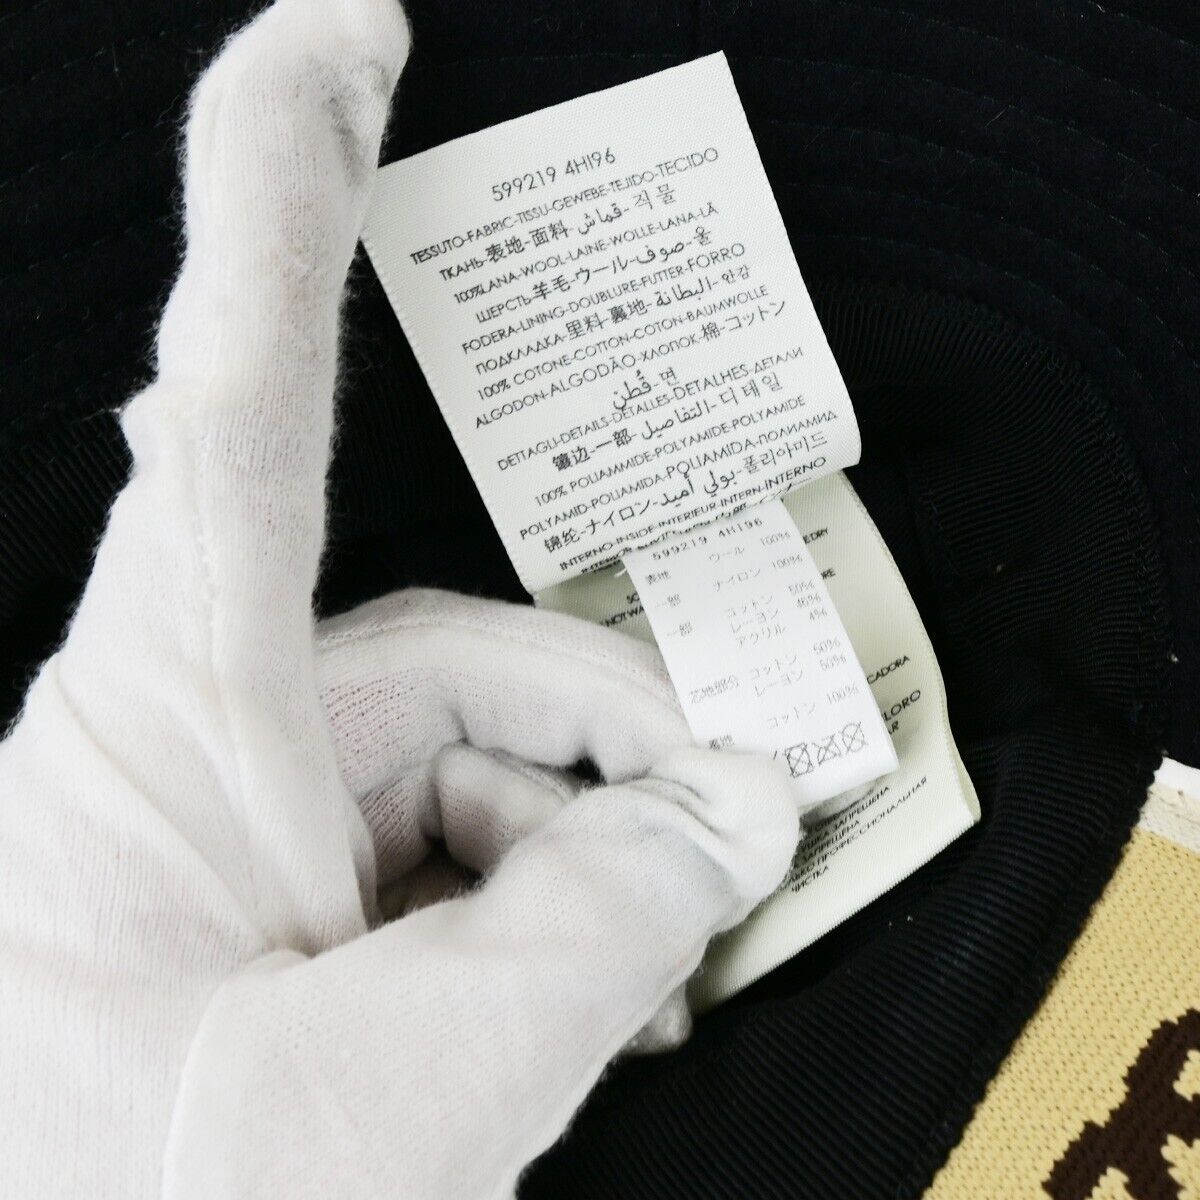 599219 4HI96
TESSUTO-FABRIC-TISSU-GEWEBE-TEJIDO-TECIDO
ТКАНЬ-表地-面料-قماش-직물
100%LANA-WOOL-LAINE-WOLLE-LANA-LÃ
ШЕРСТЬ-羊毛-ウール-صوف-울
FODERA-LINING-DOUBLURE-FUTTER-FORRO
ПОДКЛАДКА-里料-裏地-البطانة-안감
100% COTONE-COTTON-COTON-BAUMWOLLE
ALGODON-ALGODÃO-ХЛОПОК-棉-コットン
قُطن-면
DETTAGLI-DETAILS-DÉTALLES-DETALHES-ДЕТАЛИ
镶边-一部-التفاصيل-디테일
100% POLIAMMIDE-POLYAMIDE-POLYAMIDE
POLYAMID-POLIAMIDA-POLIAMIDA-ПОЛИАМИД
锦纶-ナイロン-بولي أميد-폴리아미드
INTERNO-INSIDE-INTERIEUR-INTERN-INTERNO
599219 4HI96
表地 ウール 100%
一部 ナイロン 100%
一部 コットン 50%
レーヨン 46%
アクリル 4%
芯地部分 コットン 50%
レーヨン 50%
裏地 コットン 100%
DRY
CADORA
LORO
AR
ЗАПРЕЩЕНА
ЗАПРЕЩЕНА
ПРОФЕССИОНАЛЬНАЯ
ЧИСТКА